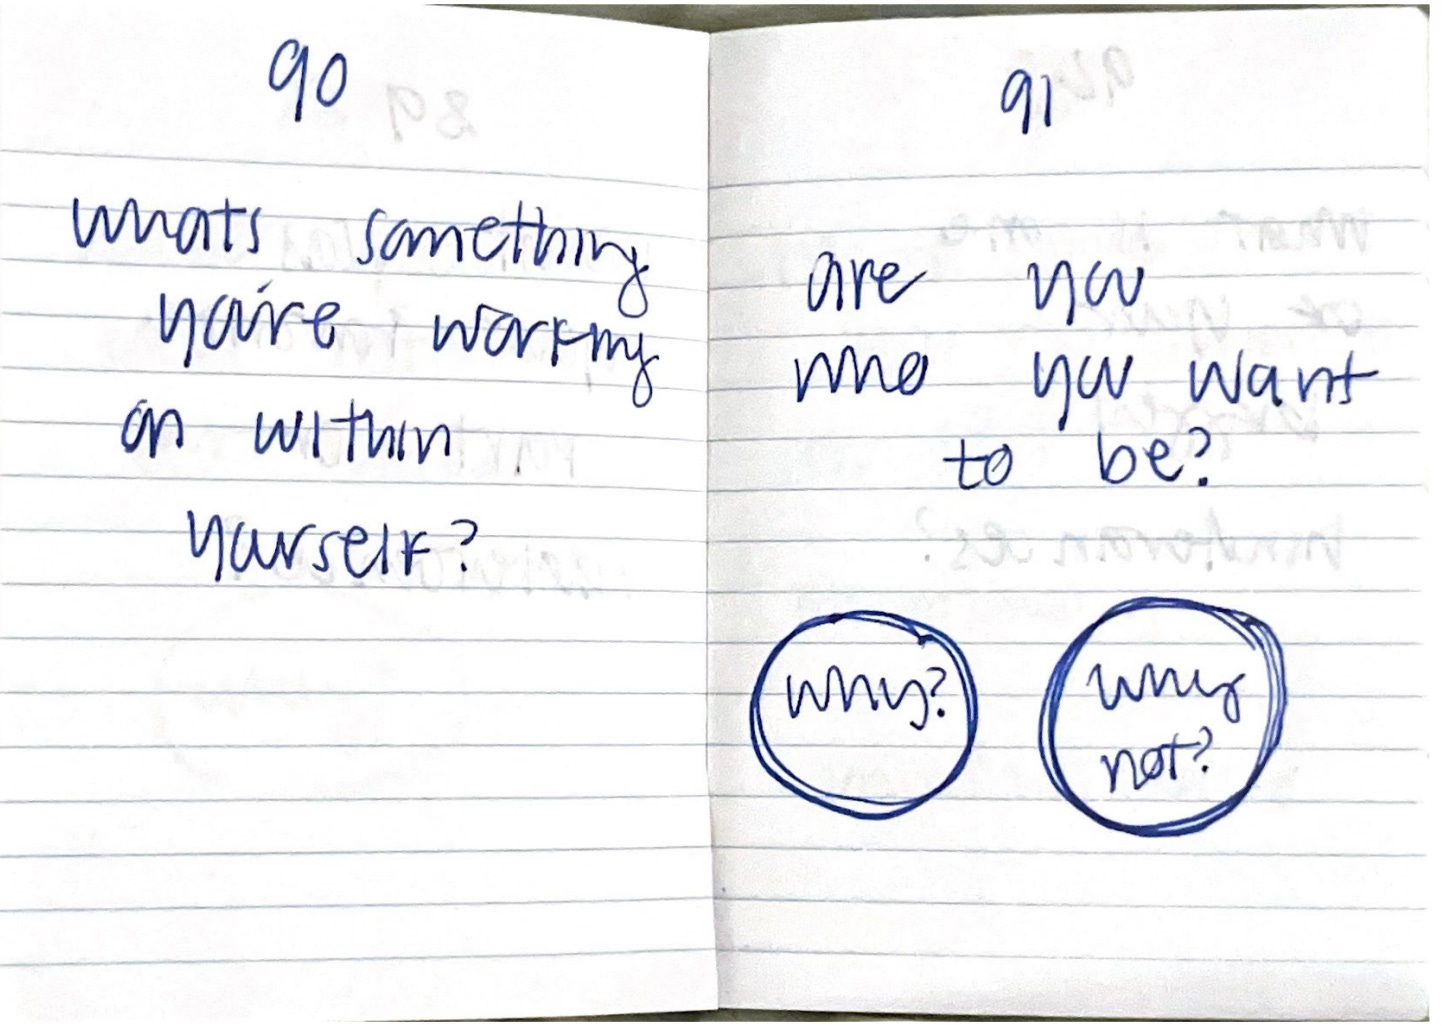 90
whats something
you're working
on within
yourself?
91
are you
who you want
to be?
why?
why
not?